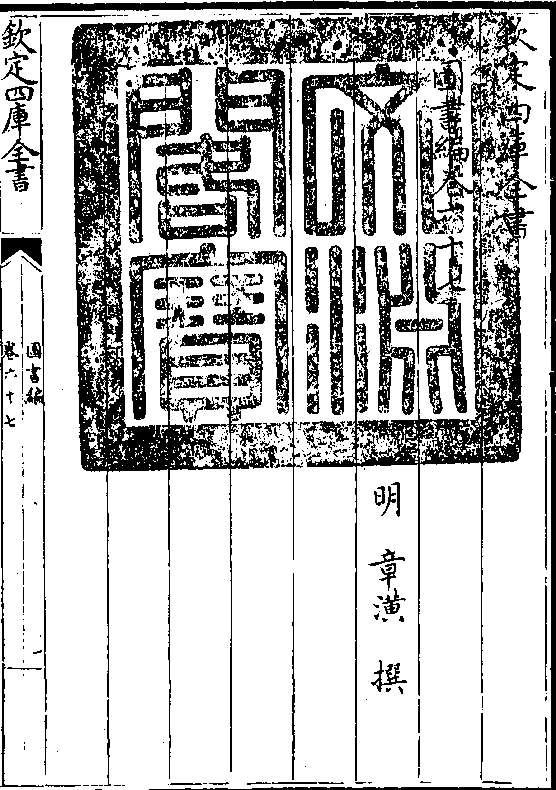 欽定四庫全書
圖書編卷六十七
明 章潢 撰
文淵閣寶
欽定四庫全書
圖書編
卷六十七